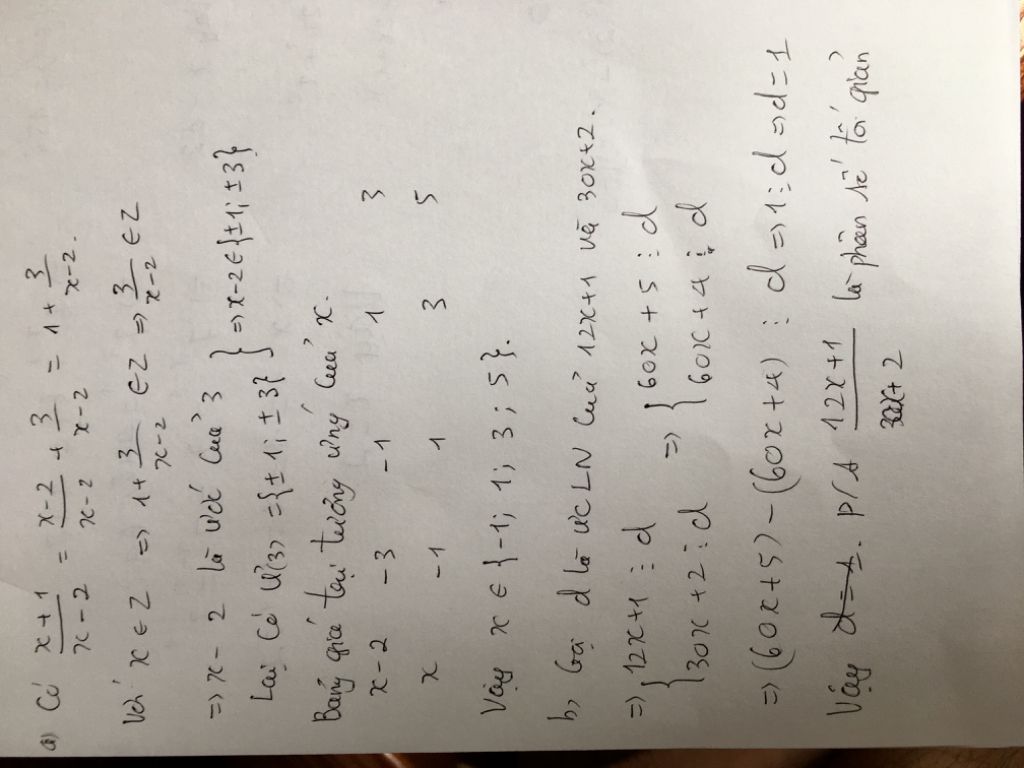 a) Có x+1/x-2 = x-2/x-2 + 3/x-2 = 1 + 3/x-2.
Với x ∈ Z ⇒ 1 + 3/x-2 ∈ Z ⇒ 3/x-2 ∈ Z
⇒ x-2 là ước của 3
Lại có Ư(3) = {±1; ±3} } ⇒ x-2 ∈ {±1; ±3}
Bảng giá trị tương ứng của x.
x-2 -3 -1 1 3
x -1 1 3 5
Vậy x ∈ {-1; 1; 3; 5}.
b, Gọi d là ƯCLN của 12x+1 và 30x+2.
⇒ { 12x+1 ⋮ d ⇒ { 60x+5 ⋮ d
30x+2 ⋮ d 60x+4 ⋮ d
⇒ (60x+5) - (60x+4) ⋮ d ⇒ 1 ⋮ d ⇒ d = 1
Vậy p/s 12x+1/30x+2 là phân số tối giản